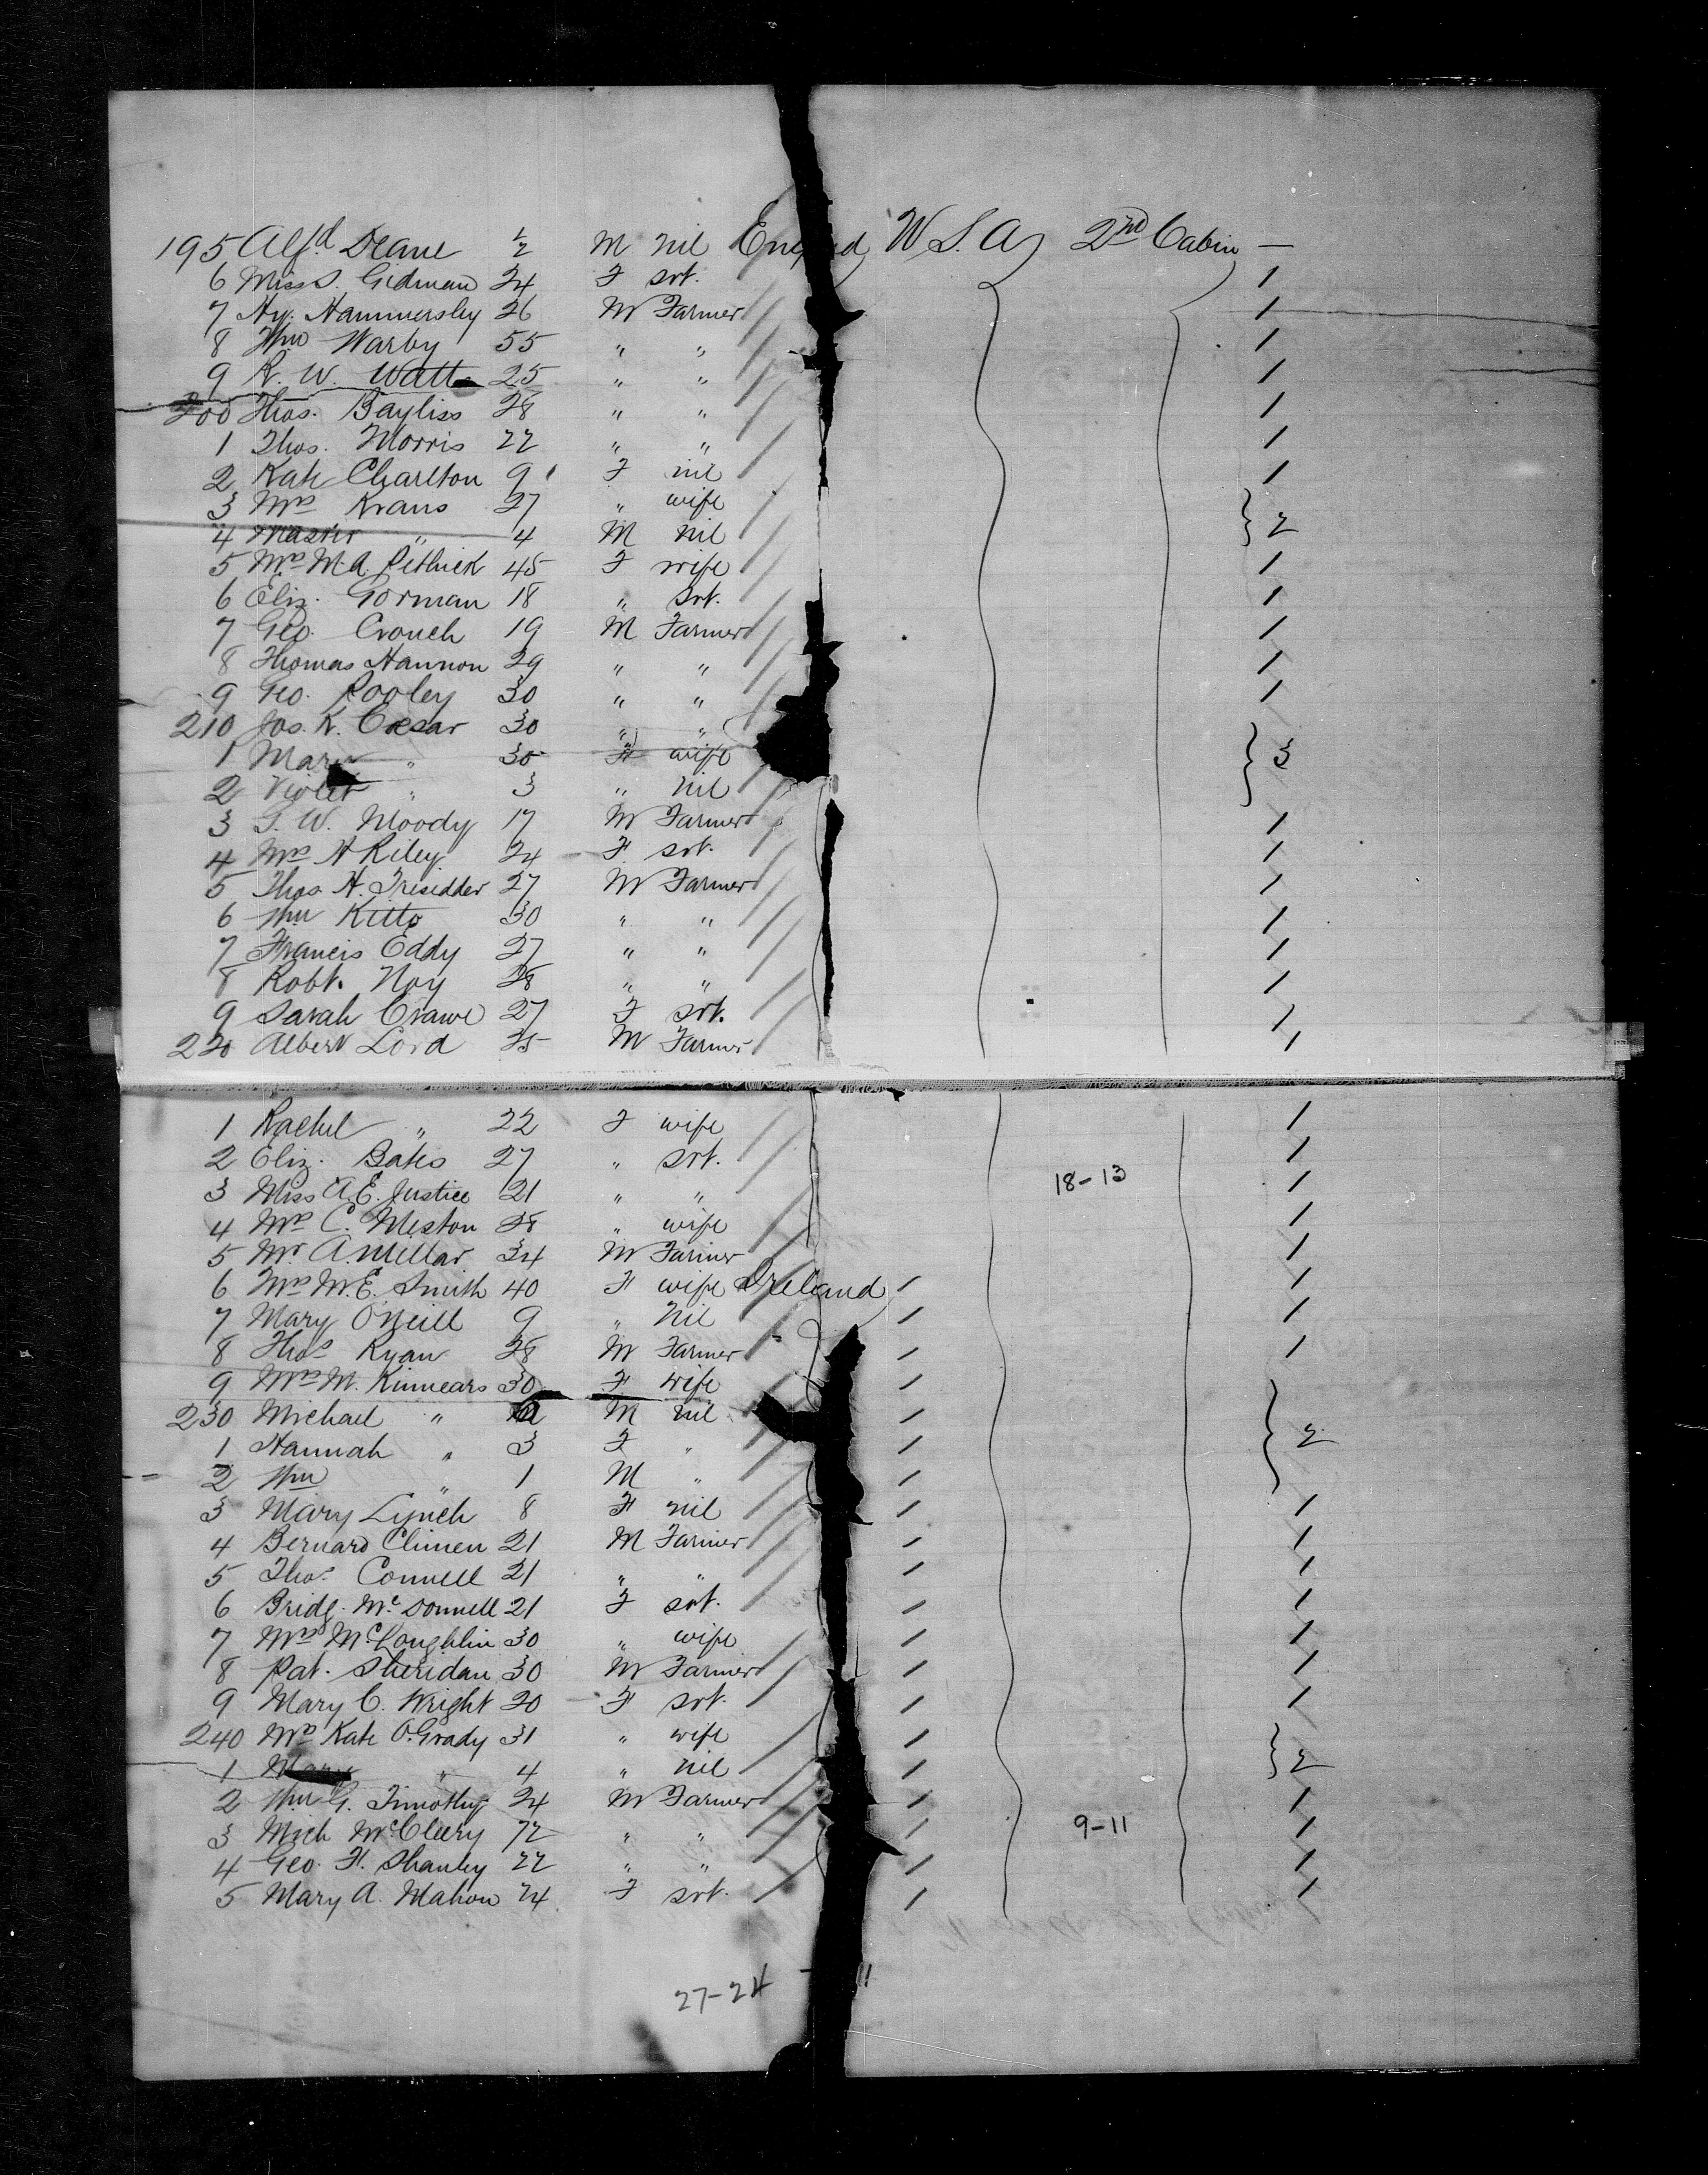 195 Alf.d Deane ½ M nil England U.S.A. 2nd Cabin —
6 Miss S. Gidman 24 F svt. /
7 Hy. Hammersley 26 M Farmer /
8 Wm Warby 55 " " /
9 R. W. Watt 25 " " /
200 Thos. Bayliss 28 " " /
1 Thos. Morris 22 " " /
2 Kate Charlton 9 F nil /
3 Mrs Kraus 27 " wife } 2
4 Master " 4 M nil
5 Mrs M.A. Pethick 45 F wife /
6 Eliz. Gorman 18 " svt. /
7 Geo. Crouch 19 M Farmer /
8 Thomas Hannon 29 " " /
9 Geo. Pooley 30 " " /
210 Jos. K. Caesar 30 " " } 3
1 Mary " 30 F wife
2 Violet " 3 " nil
3 G. W. Moody 17 M Farmer /
4 Mrs H Riley 24 F svt. /
5 Thos H. Trisidder 27 M Farmer /
6 Wm Kitto 30 " " /
7 Francis Eddy 27 " " /
8 Robt. Noy 28 " " /
9 Sarah Crawe 27 F svt. /
220 Albert Lord 25 M Farmer /
1 Rachel " 22 F wife /
2 Eliz. Bates 27 " svt. /
3 Miss A.E. Justice 21 " " 18-13 /
4 Mrs C. Meston 28 " wife /
5 Mr A. Millar 34 M Farmer /
6 Mrs M.E. Smith 40 F wife Ireland / /
7 Mary O'Neill 9 " nil / /
8 Thos Ryan 28 M Farmer / /
9 Mrs M. Kinnears 30 F wife / } 2
230 Michael " M nil /
1 Hannah " 3 F " /
2 Wm " 1 M " /
3 Mary Lynch 8 F nil / /
4 Bernard Climen 21 M Farmer / /
5 Thos. Connell 21 " " / /
6 Bridg. McDonnell 21 F svt. / /
7 Mrs McLoughlin 30 " wife / /
8 Pat. Sheridan 30 M Farmer / /
9 Mary C. Wright 20 F svt. / /
240 Mrs Kate O'Grady 31 " wife / } 2
1 Mary " 4 " nil /
2 Wm G. Timothy 24 M Farmer / /
3 Mich McCleery 72 " " / 9-11 /
4 Geo. H. Shanley 22 " " / /
5 Mary A. Mahon 24 F svt. / /
27-24
11